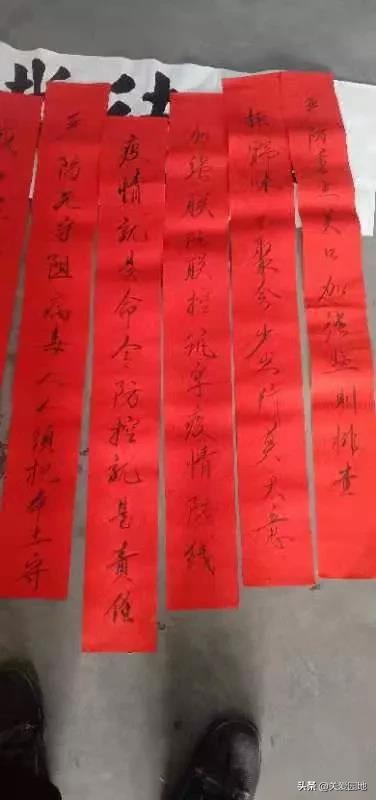 严防重点关口加强监测排查
聚会少出门莫大意
加强联防联控筑牢疫情防线
疫情就是命令防控就是责任
严防死守阻病毒人人须把本土守
头条 @关爱园地